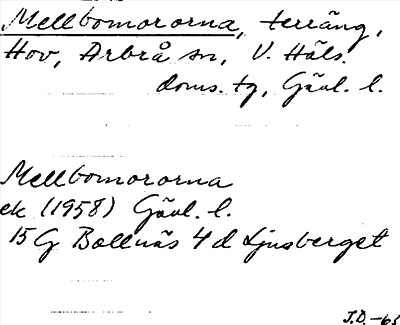 Mellbomororna, terräng,
Hov, Arbrå sn, V. Häls.
doms. tg, Gävl. l.
Mellbomororna
ek (1958) Gävl. l.
15 G Bollnäs 4 d Ljusberget
J.D. -63